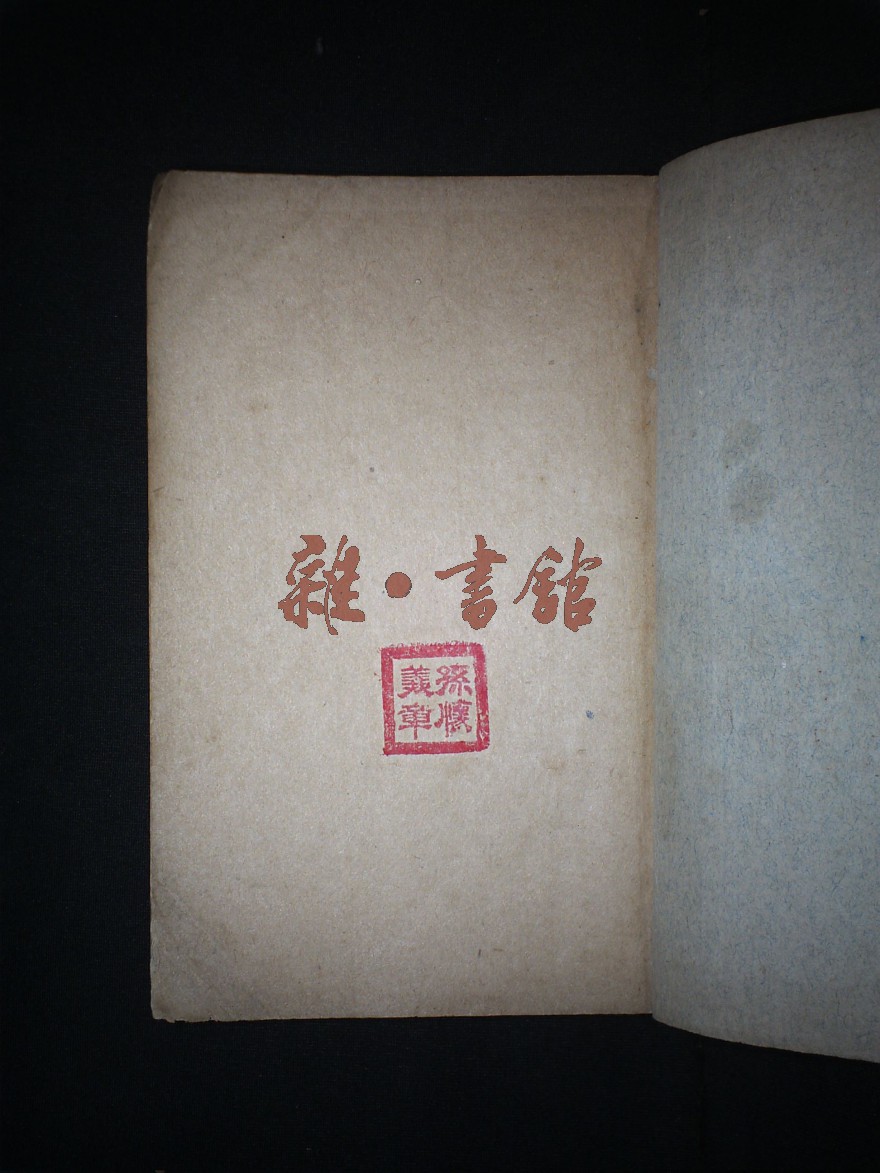 雜·書館
孫懷
義章